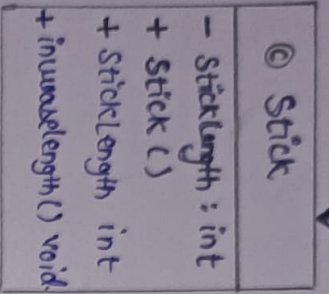 © Stick
- Sticklength : int
+ Stick ()
+ Sticklength int
+ increaselength() void.